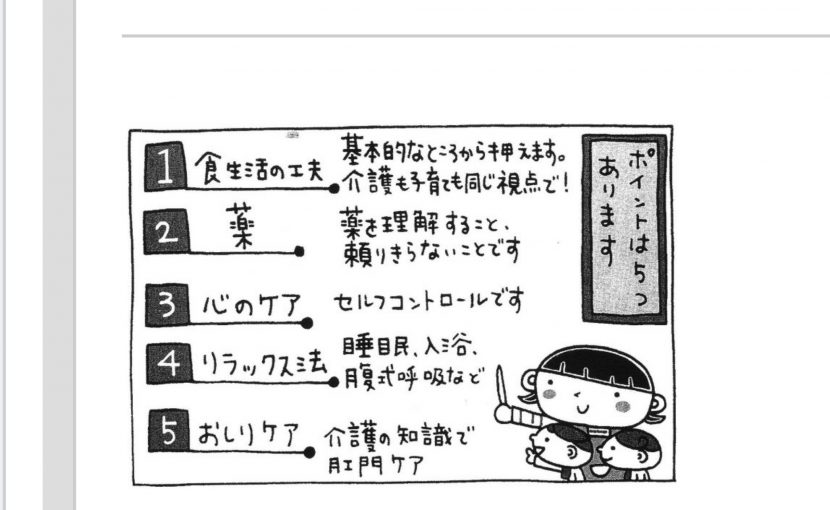 ポイントは5つ
あります
1 食生活の工夫
基本的なところから押えます。
介護も子育ても同じ視点で!
2 薬
薬を理解すること、
頼りきらないことです
3 心のケア
セルフコントロールです
4 リラックス法
睡眠、入浴、
腹式呼吸など
5 おしりケア
介護の知識で
肛門ケア